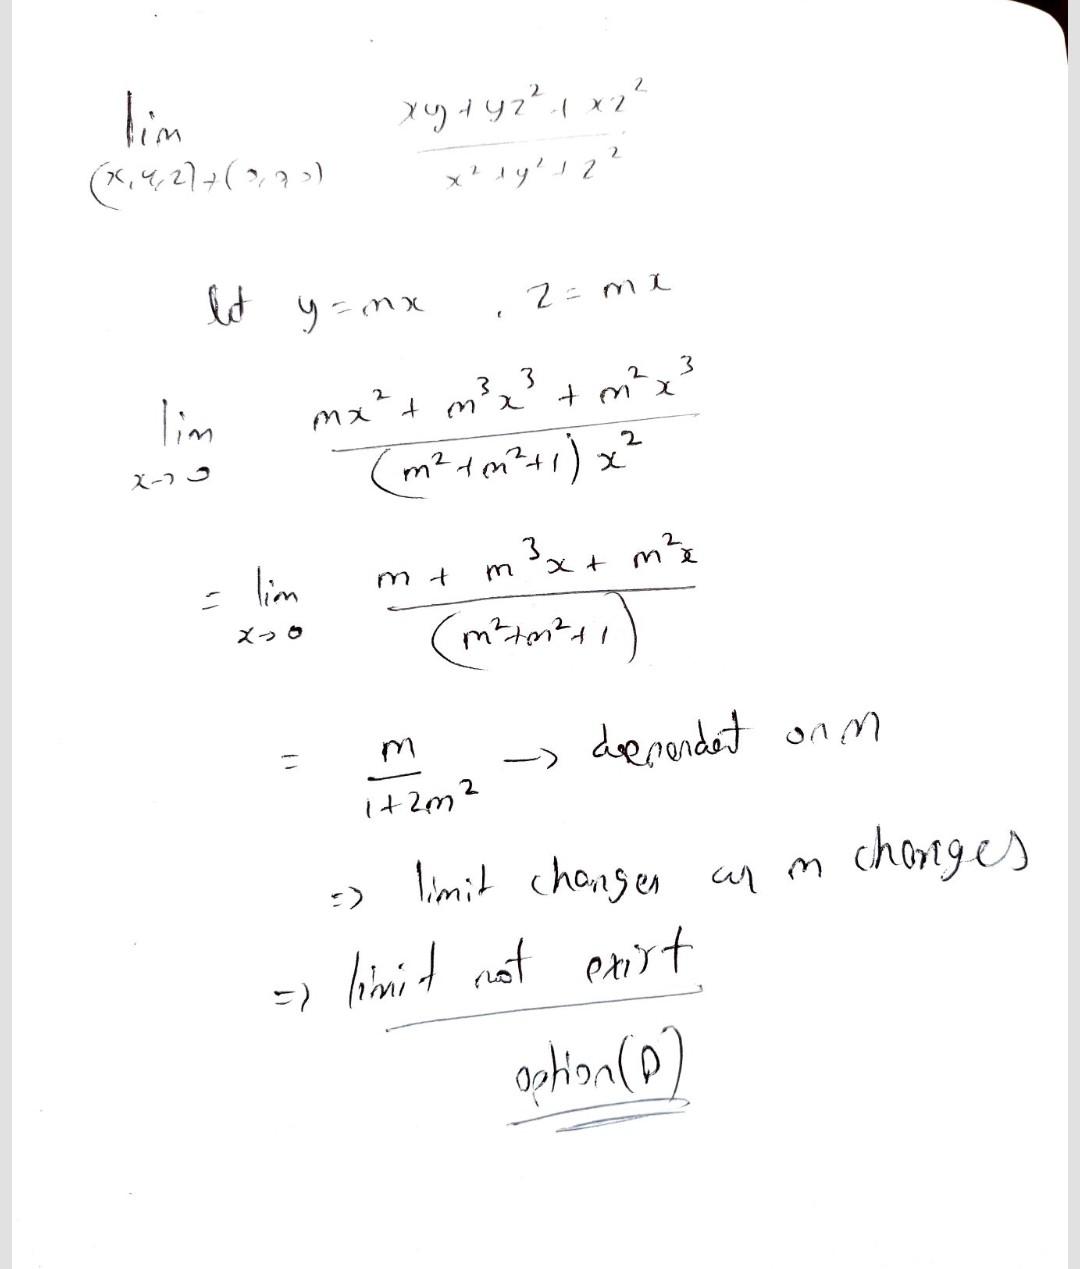 lim xy + yz² + xz² / x² + y² + z²
(x, y, z) → (0, 0, 0)
let y = mx , z = mx
lim mx² + m³x³ + m²x³ / (m² + m² + 1) x²
x → 0
= lim m + m³x + m²x / (m² + m² + 1)
x → 0
= m / 1 + 2m² → dependent on m
⇒ limit changes as m changes
⇒ limit not exist
option (D)